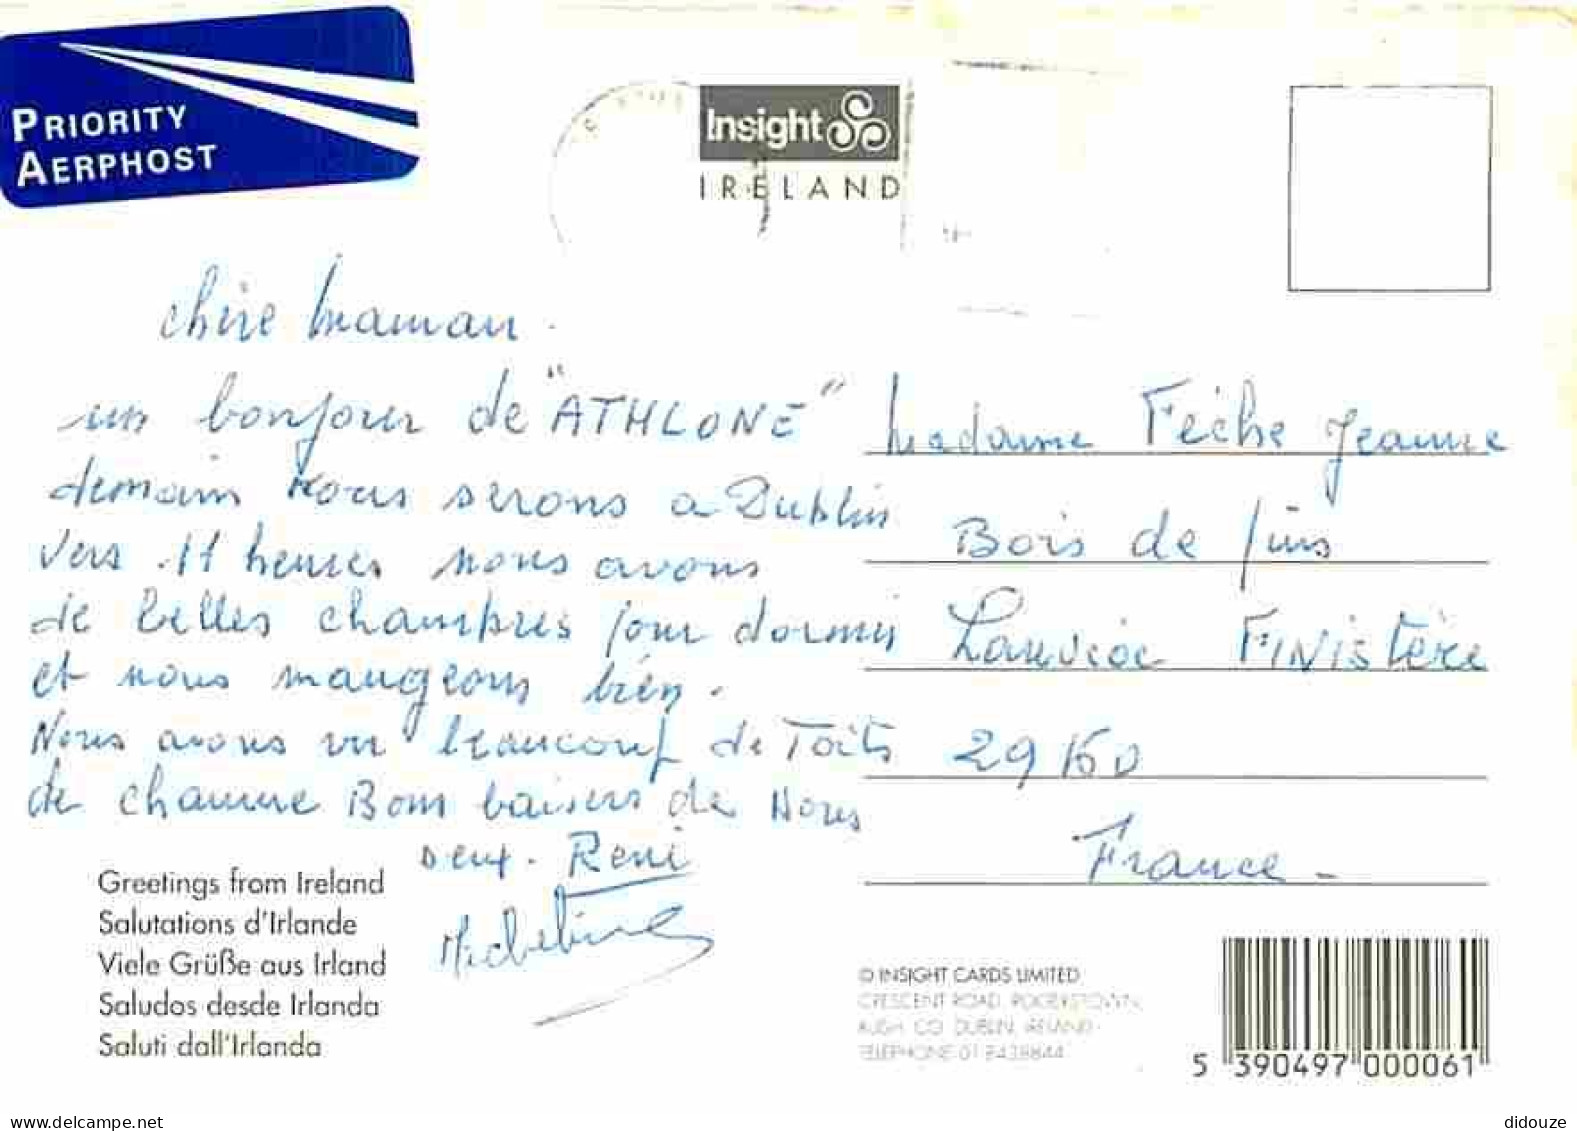 PRIORITY
AERPHOST
Insight
IRELAND
chère maman.
un bonjour de "ATHLONE"
demain nous serons a Dublin
vers 11 heures nous avons
de belles chambres pour dormir
et nous mangeons bien.
Nous avons vu beaucoup de Toits
de chaume Bons baisers de Nous
deux. René
Micheline
Madame Féche Jeanne
Bois de pins
Lanvéoc FINISTère
29160
France -
Greetings from Ireland
Salutations d'Irlande
Viele Grüße aus Irland
Saludos desde Irlanda
Saluti dall'Irlanda
© INSIGHT CARDS LIMITED
CRESCENT ROAD, ROGERSTOWN,
RUSH, CO. DUBLIN, IRELAND
TELEPHONE 01 8438844
5 390497 000061
www.delcampe.net
didouze